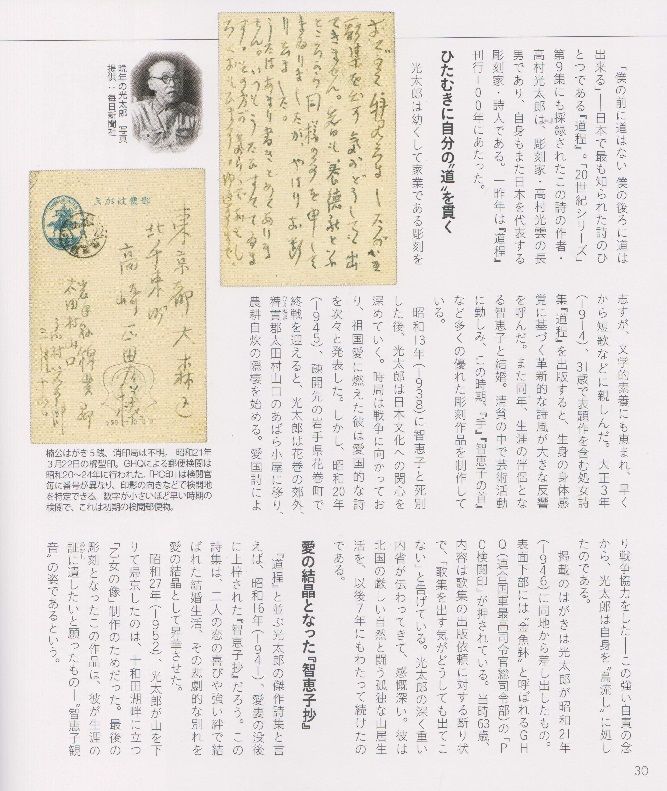 「僕の前に道はない 僕の後ろに道は
出来る」――日本で最も知られた詩のひ
とつである『道程』。「20世紀シリーズ」
第9集にも採録されたこの詩の作者・
高村光太郎は、彫刻家・高村光雲の長
男であり、自身もまた日本を代表する
彫刻家・詩人である。一昨年は『道程』
刊行100年にあたった。
ひたむきに自分の〝道〟を貫く
光太郎は幼くして家業である彫刻を
晩年の光太郎 写真
提供:毎日新聞社
郵便はがき
東京都大森区
北千束町
志すが、文学的素養にも恵まれ、早く
から短歌などに親しんだ。大正3年
(1914)、31歳で表題作を含む処女詩
集『道程』を出版すると、生身の身体感
覚に基づく革新的な詩風が大きな反響
を呼んだ。また同年、生涯の伴侶とな
る智恵子と結婚。清貧の中で芸術活動
に勤しみ、この時期、『手』『智恵子の首』
など多くの優れた彫刻作品を制作して
いる。
昭和13年(1938)に智恵子と死別
した後、光太郎は日本文化への関心を
深めていく。時局は戦争に向かってお
り、祖国愛に燃えた彼は愛国的な詩
を次々と発表した。しかし、昭和20年
(1945)、疎開先の岩手県花巻町で
終戦を迎えると、光太郎は花巻の郊外、
稗貫郡太田村山口のあばら小屋に移り、
農耕自炊の隠棲を始める。愛国詩によ
楠公はがき5銭。消印局は不明。昭和21年
3月22日の櫛型印。GHQによる郵便検閲は
昭和20~24年に行われた。「PC印」は検閲官
毎に番号が異なり、印影の向きなどで検閲地
を特定できる。数字が小さいほど早い時期の
検閲で、これは初期の検閲郵便物。
り戦争協力をした――この強い自責の念
から、光太郎は自身を〝島流し〟に処し
たのである。
掲載のはがきは光太郎が昭和21年
(1946)に同地から差し出したもの。
表面下部には〝金魚鉢〟と呼ばれるGH
Q(連合国軍最高司令官総司令部)の「P
C検閲印」が押されている。当時63歳、
内容は歌集の出版依頼に対する断り状
で、「歌集を出す気がどうしても出てこ
ない」と告げている。光太郎の深く重い
内省が伝わってきて、感慨深い。彼は
北国の厳しい自然と闘う孤独な山居生
活を、以後7年にもわたって続けたの
である。
愛の結晶となった『智恵子抄』
『道程』と並ぶ光太郎の傑作詩集と言
えば、昭和16年(1941)、愛妻の没後
に上梓された『智恵子抄』だろう。この
詩集は、二人の恋の喜びや強い絆で結
ばれた結婚生活、その悲劇的な別れを
愛の結晶として昇華させた。
昭和27年(1952)、光太郎が山を下
りて帰京したのは、十和田湖畔に立つ
『乙女の像』制作のためだった。最後の
彫刻となったこの作品は、彼が生涯の
証に遺したいと願ったもの――〝智恵子観
音〟の姿であるという。
30